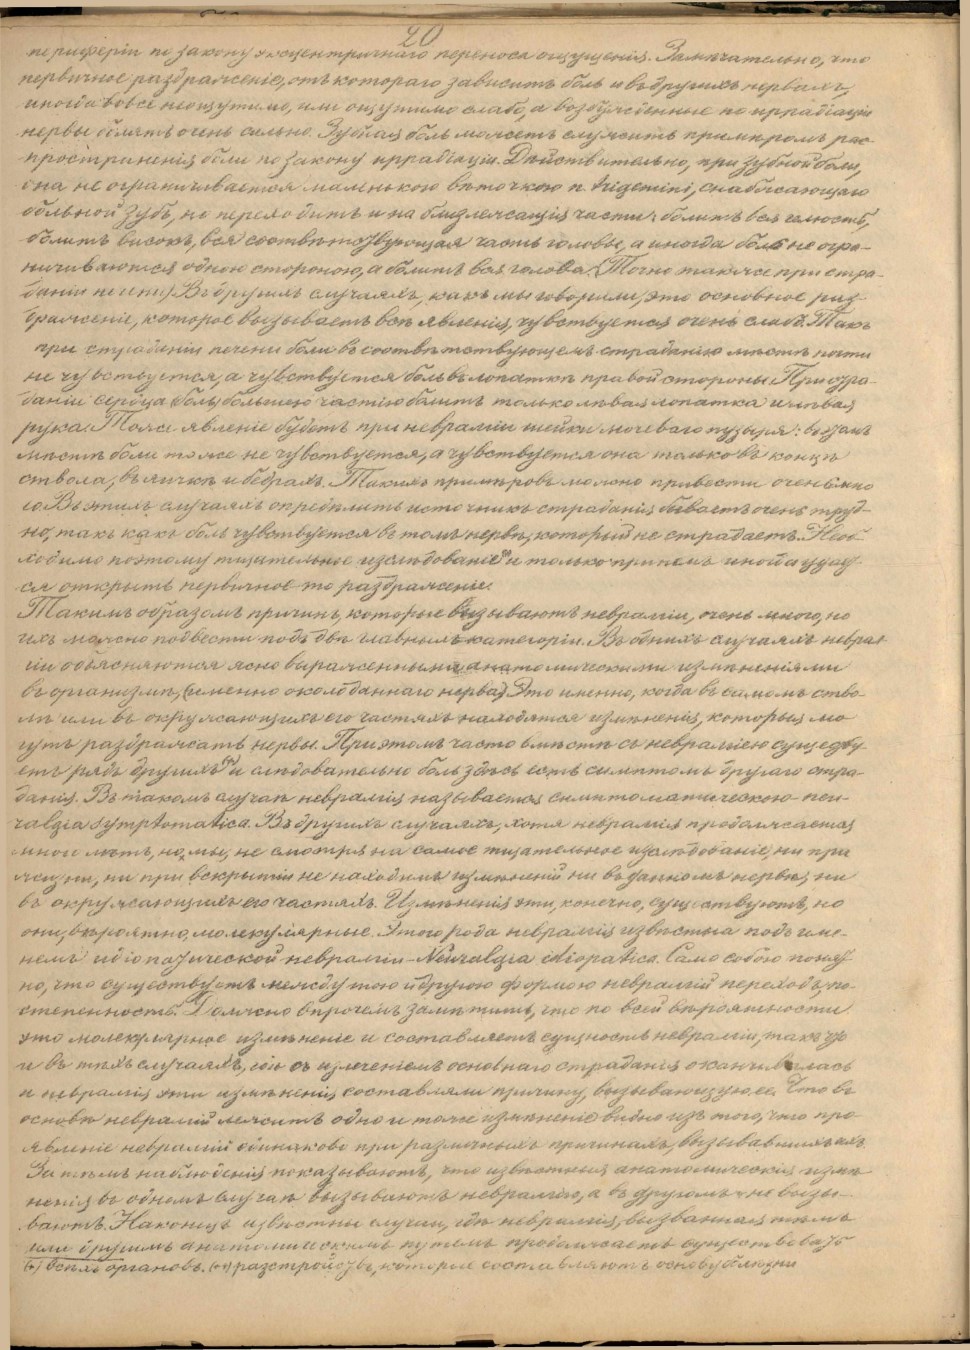 20
периферіи по закону эксцентричнаго переноса ощущенія. Замѣчательно, что
первичное раздраженіе, отъ котораго зависитъ боль и въ другихъ нервахъ,
иногда вовсе неощутимо, или ощутимо слабо, а возбужденные по иррадіаціи
нервы болятъ очень сильно. Зубная боль можетъ служить примѣромъ рас-
пространенія боли по закону иррадіаціи. Дѣйствительно, при зубной боли,
она не ограничивается маленькою вѣточкою n. trigemini, снабжающаго
больной зубъ, но переходитъ и на близлежащія части: болитъ вся челюсть,
болитъ високъ, вся соотвѣтствующая часть головы, а иногда боль не огра-
ничиваются одною стороною, а болитъ вся голова. (Точно также при стра-
даніи печени). Въ другихъ случаяхъ, какъ мы говорили, это основное раз-
драженіе, которое вызываетъ всѣ явленія, чувствуется очень слабо. Такъ
при страданіи печени боли въ соотвѣтствующемъ страданію мѣстѣ почти
не чувствуется, а чувствуется боль въ лопаткѣ правой стороны. При стра-
даніи сердца (боль) большею частію болитъ только лѣвая лопатка и лѣвая
рука. Тоже явленіе будетъ при невралгіи шейки мочеваго пузыря: въ этомъ
мѣстѣ боли тоже не чувствуется, а чувствуется она только въ концѣ
ствола, въ яичкѣ и бедрахъ. Такихъ примѣровъ можно привести очень мно
го. Въ этихъ случаяхъ опредѣлить источникъ страданія бываетъ очень труд-
но, такъ какъ боль чувствуется въ томъ нервѣ, который не страдаетъ. Необ
ходимо поэтому тщательное изслѣдованіе (*) и только причемъ иногда удает
ся открыть первичное то раздраженіе.
Такимъ образомъ причинъ, которые вызываютъ невралгіи, очень много, но
ихъ можно подвести подъ двѣ главныхъ категоріи. Въ однихъ случаяхъ невра
гіи объясняются ясно выраженными анатомическими измѣненіями
въ организмѣ, (именно около даннаго нерва). Это именно, когда въ самомъ ство-
лѣ или въ окружающихъ его частяхъ находятся измѣненія, которыя мо
гутъ раздражать нервы. При этомъ часто вмѣстѣ съ невралгіею существу-
етъ рядъ другихъ (**) и слѣдовательно боль здѣсь есть симптомъ другаго стра-
данія. Въ такомъ случаѣ невралгія называется симптоматическою - neu-
ralgia symptomatica. Въ другихъ случаяхъ, хотя невралгія продолжается
много лѣтъ, но, мы, не смотря на самое тщательное изслѣдованіе, ни при
жизни, ни при вскрытіи не находимъ измѣненій ни въ данномъ нервѣ, ни
въ окружающихъ его частяхъ. Измѣненія эти, конечно, существуютъ, но
они, вѣроятно, молекулярные. Этого рода невралгія извѣстна подъ име-
немъ идіопатической невралгіи - Neuralgia idiopatica. Само собою понят
но, что существуетъ между тою и другою формою невралгій переходъ, по-
степенность. Должно впрочемъ замѣтить, что по всей вѣроятности
это молекулярное измѣненіе и составляетъ сущность невралгіи, такъ что
и въ тѣхъ случаяхъ, гдѣ съ излеченіемъ основнаго страданія оканчивалась
и невралгія эти измѣненія составляли причину, вызывающую ее. Что въ
основѣ невралгій лежитъ одно и тоже измѣненіе видно изъ того, что про-
явленіе невралгій одинаково при различныхъ причинахъ, вызывавшихъ ихъ
Затѣмъ наблюденія показываютъ, что извѣстныя анатомическія измѣ-
ненія въ одномъ случаѣ вызываютъ невралгію, а въ другомъ - не вызы-
ваютъ. Наконецъ извѣстны случаи, гдѣ невралгія, вызванная тѣмъ
или другимъ анатомическимъ путемъ продолжаетъ существовать
(*) всѣхъ органовъ. (**) разстройствъ, которыя составляютъ основу болѣзни